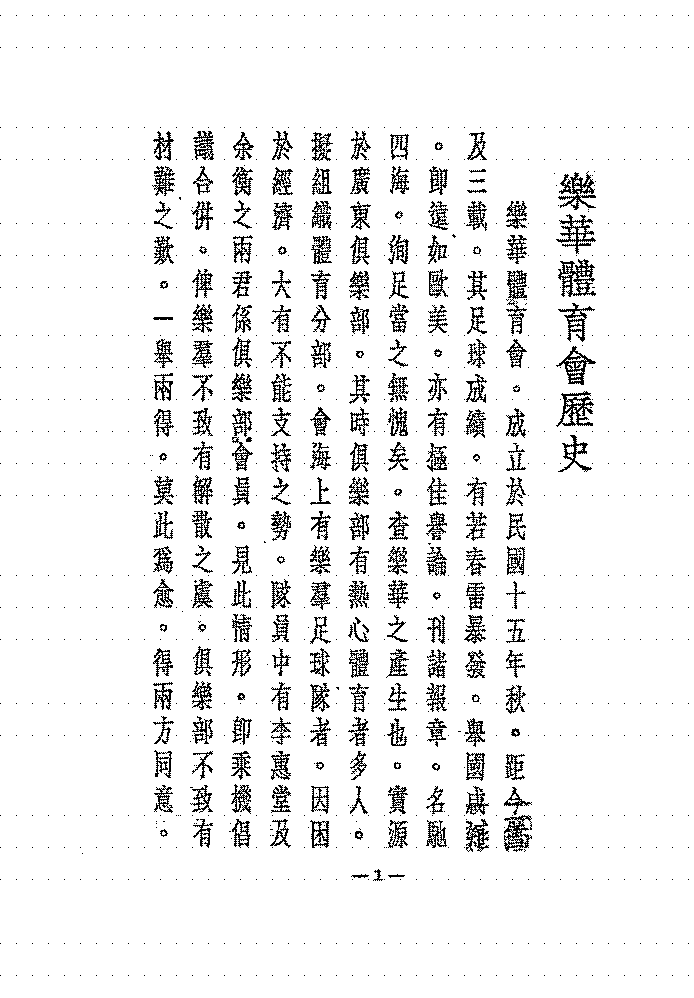 樂華體育會歷史
樂華體育會。成立於民國十五年秋。距今
及三載。其足球成績。有若春雷暴發。舉國咸
。卽遠如歐美。亦有極佳譽論。刊諸報章。名馳
四海。洵足當之無愧矣。查樂華之產生也。實源
於廣東俱樂部。其時俱樂部有熱心體育者多人。
擬組織體育分部。會海上有樂羣足球隊者。因困
於經濟。大有不能支持之勢。隊員中有李惠堂及
余衡之兩君係俱樂部會員。見此情形。卽乘機倡
議合併。俾樂羣不致有解散之虞。俱樂部不致有
材難之歎。一舉兩得。莫此爲愈。得兩方同意。
—1—